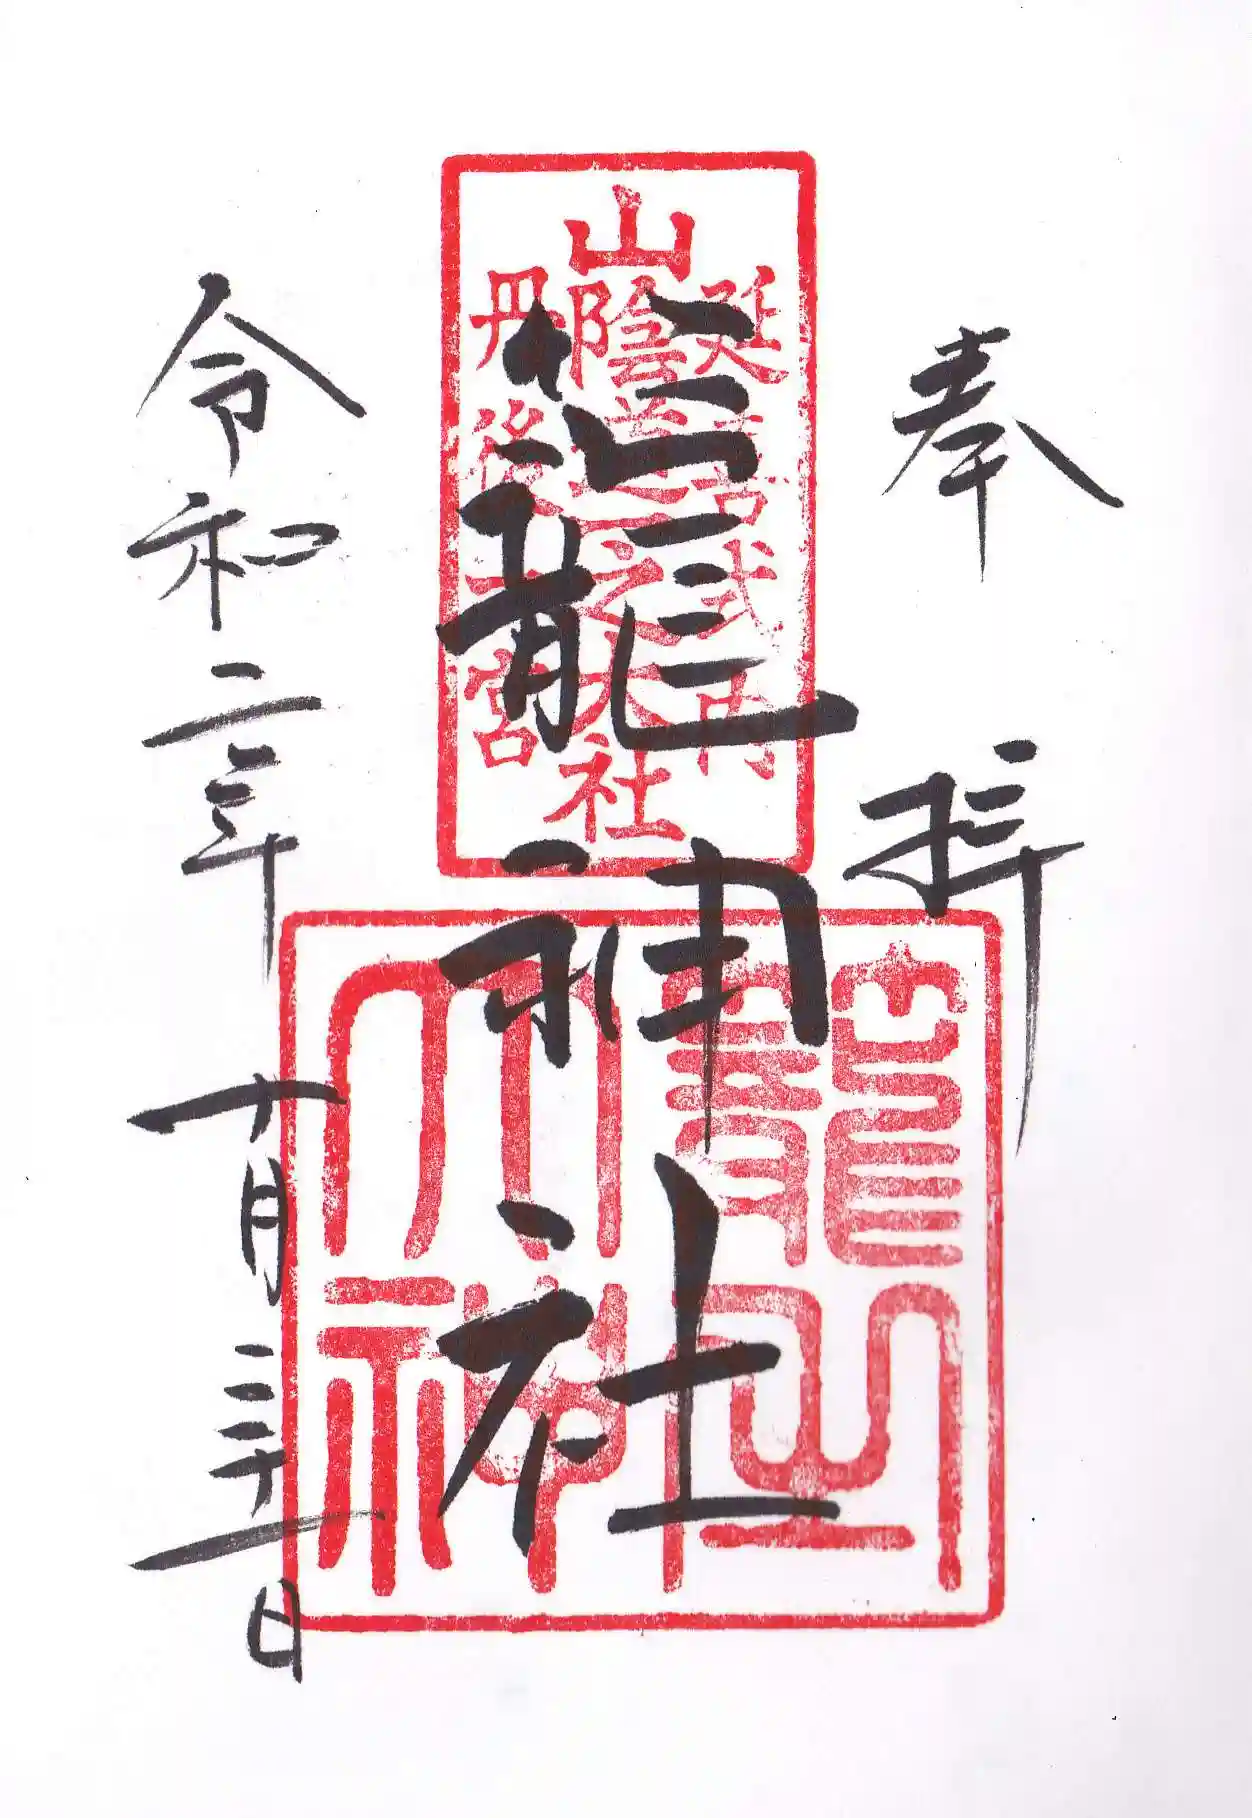 奉拝
延喜式内
山陰道之大社
丹後一宮
籠神社
大神
令和二年十月三十一日